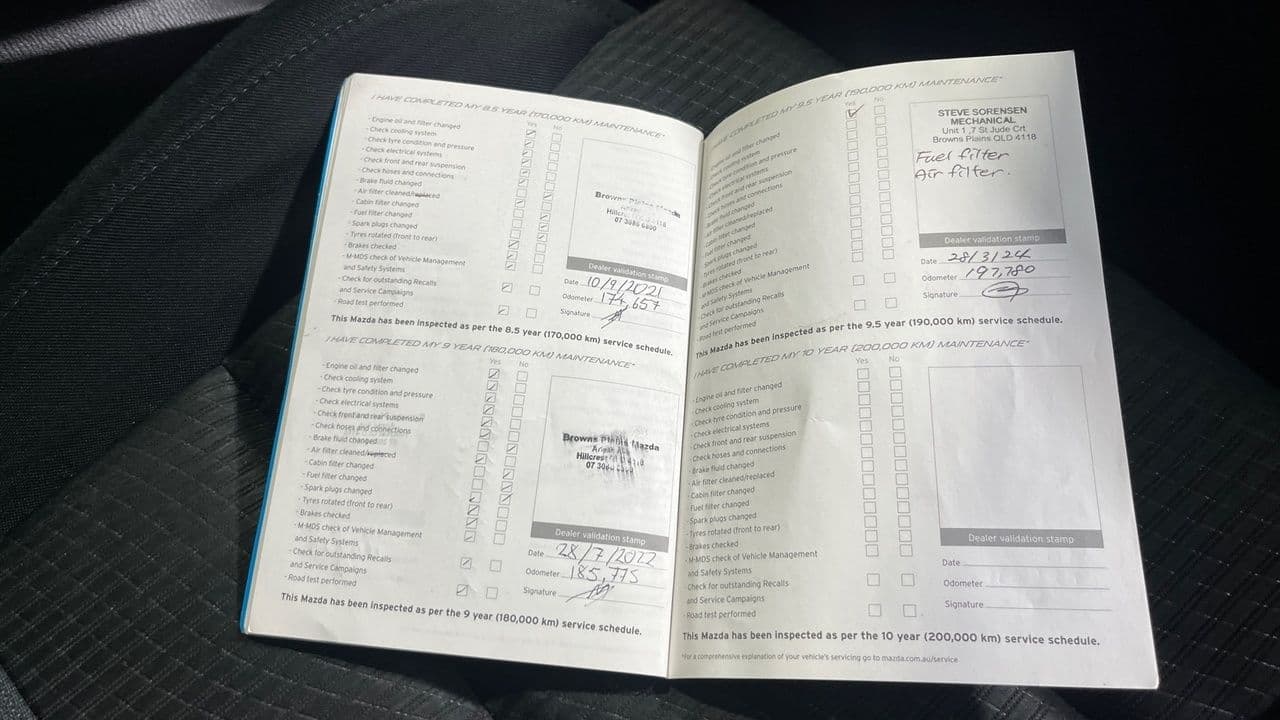 I HAVE COMPLETED MY 8.5 YEAR (170,000 KM) MAINTENANCE*
Yes No
- Engine oil and filter changed
- Check cooling system
- Check tyre condition and pressure
- Check electrical systems
- Check front and rear suspension
- Check hoses and connections
- Brake fluid changed
- Air filter cleaned/replaced
- Cabin filter changed
- Fuel filter changed
- Spark plugs changed
- Tyres rotated (front to rear)
- Brakes checked
- M-MDS check of Vehicle Management
and Safety Systems
- Check for outstanding Recalls
and Service Campaigns
- Road test performed
Browns Plains Mazda
07 3086 6800
Dealer validation stamp
Date 10/9/2021
Odometer 174,657
Signature
This Mazda has been inspected as per the 8.5 year (170,000 km) service schedule.
I HAVE COMPLETED MY 9 YEAR (180,000 KM) MAINTENANCE*
Yes No
- Engine oil and filter changed
- Check cooling system
- Check tyre condition and pressure
- Check electrical systems
- Check front and rear suspension
- Check hoses and connections
- Brake fluid changed
- Air filter cleaned/replaced
- Cabin filter changed
- Fuel filter changed
- Spark plugs changed
- Tyres rotated (front to rear)
- Brakes checked
- M-MDS check of Vehicle Management
and Safety Systems
- Check for outstanding Recalls
and Service Campaigns
- Road test performed
Browns Plains Mazda
Hillcrest
Dealer validation stamp
Date 28/7/2022
Odometer 185,775
Signature
This Mazda has been inspected as per the 9 year (180,000 km) service schedule.
COMPLETED MY 9.5 YEAR (190,000 KM) MAINTENANCE*
Yes No
Engine oil and filter changed
Check cooling system
Check tyre condition and pressure
Check electrical systems
Check front and rear suspension
Check hoses and connections
Brake fluid changed
Air filter cleaned/replaced
Cabin filter changed
Fuel filter changed
Spark plugs changed
Tyres rotated (front to rear)
Brakes checked
M-MDS check of Vehicle Management
and Safety Systems
Check for outstanding Recalls
and Service Campaigns
Road test performed
STEVE SORENSEN
MECHANICAL
Unit 1 ,7 St Jude Crt
Browns Plains QLD 4118
Fuel filter
Air filter.
Dealer validation stamp
Date 28/3/24
Odometer 197,780
Signature
This Mazda has been inspected as per the 9.5 year (190,000 km) service schedule.
I HAVE COMPLETED MY 10 YEAR (200,000 KM) MAINTENANCE*
Yes No
- Engine oil and filter changed
- Check cooling system
- Check tyre condition and pressure
- Check electrical systems
- Check front and rear suspension
- Check hoses and connections
- Brake fluid changed
- Air filter cleaned/replaced
- Cabin filter changed
Fuel filter changed
Spark plugs changed
- Tyres rotated (front to rear)
- Brakes checked
- M-MDS check of Vehicle Management
and Safety Systems
Check for outstanding Recalls
and Service Campaigns
- Road test performed
Dealer validation stamp
Date
Odometer
Signature
This Mazda has been inspected as per the 10 year (200,000 km) service schedule.
*For a comprehensive explanation of your vehicle's servicing go to mazda.com.au/service